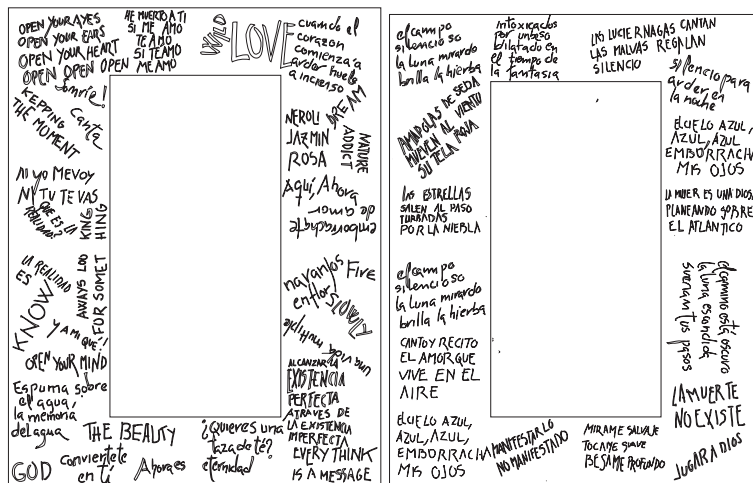 OPEN YOUR AYES
OPEN YOUR EARS
OPEN YOUR HEART
OPEN OPEN OPEN
HE MUERTO A TI
SI ME AMO
TE AMO
SI TE AMO
ME AMO
WILD
LOVE
cuando el
corazon
comienza a
arder huele
a incienso
Sonrie!
KEPPING
THE MOMENT
Canta
DREAM
NEROLI
JAZMIN
ROSA
NATURE
ADDICT
NI YO ME VOY
NY TU TE VAS
QUE ES LA
REALIDAD?
AWAYS LOO
KING
FOR SOMET
HING
Aquí, Ahora
emborrachate
de amor
LA REALIDAD
ES
KNOW
Y A MI QUE!!
OPEN YOUR MIND
naranjos
en flor
FIVE
SLOWLY
una vida
ALCANZAR LA
EXISTENCIA
PERFECTA
ATRAVES DE
LA EXISTENCIA
IMPERFECTA
EVERY THINK
IS A MESSAGE
Espuma sobre
el agua,
la memoria
del agua
THE BEAUTY
¿Quieres una
taza de té?
GOD
Conviertete
en tí
Ahora es
eternidad
el campo
silencioso
la luna mirardo
brilla la hierba
intoxicados
por un beso
dilatado en
el tiempo de
la fantasia
LAS LUCIERNAGAS CANTAN
LAS MALVAS REGALAN
SILENCIO
silencio para
arder en
la noche
AMAPOLAS DE SEDA
MUEVEN AL VIENTO
SU TELA ROJA
EL CIELO AZUL,
AZUL, AZUL
EMBORRACHA
MIS OJOS
LAS ESTRELLAS
SALEN AL PASO
TURBADAS
POR LA NIEBLA
LA MUJER ES UNA DIOS,
PLANEANDO SOBRE
EL ATLANTICO
el campo
silencioso
la luna mirardo
brilla la hierba
el camino está oscuro
la luna escondida
suenan tus pasos
CANTO Y RECITO
EL AMOR QUE
VIVE EN EL
AIRE
LA MUERTE
NO EXISTE
EL CIELO AZUL,
AZUL, AZUL,
EMBORRACHA
MIS OJOS
MANIFESTAR LO
NO MANIFESTADO
MIRAME SALVAJE
TOCAME SUAVE
BESAME PROFUNDO
JUGAR A DIOS